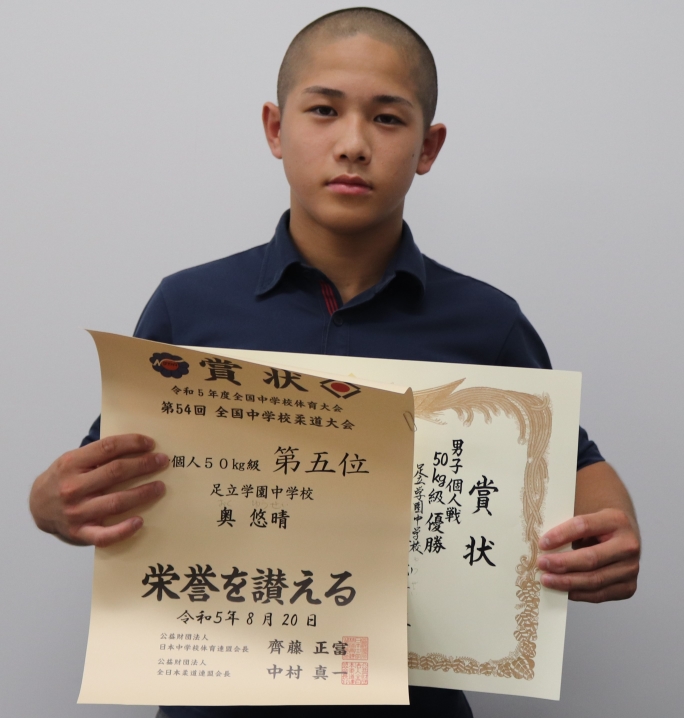 賞状
令和5年度全国中学校体育大会
第54回 全国中学校柔道大会
個人50kg級 第五位
足立学園中学校
奥 悠晴
栄誉を讃える
令和5年8月20日
公益財団法人
日本中学校体育連盟会長 齊藤 正富
公益財団法人
全日本柔道連盟会長 中村 真一
賞状
男子個人戦
50kg級優勝
足立学園中学校